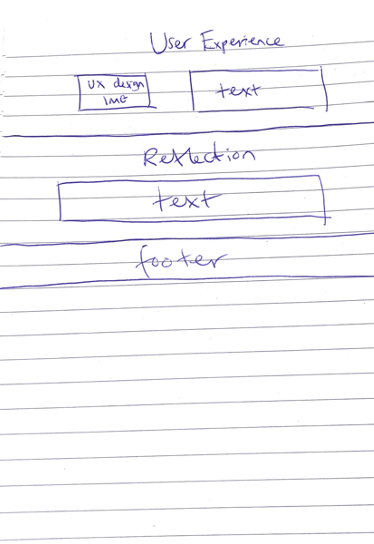 User Experience
UX design text
img
Reflection
text
footer